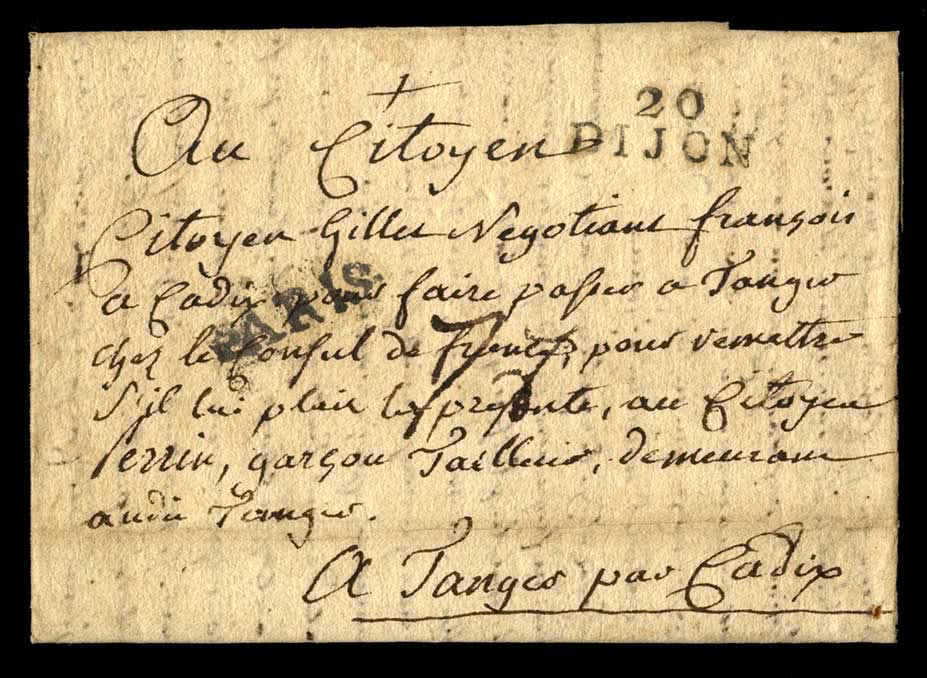 20
DIJON
Au Citoyen
Citoyen Gillet Negotiant françois
a Cadix pour faire passer a Tanger
chez le Consul de france, pour remettre
S'il lui plait la présente, au Citoyen
Perrin, garçon Tailleur, demeurant
audit Tanger.
PARIS
A Tanger par Cadix